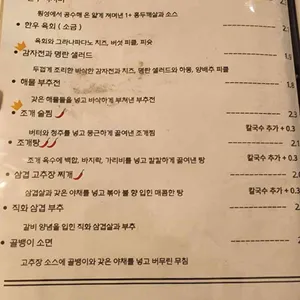 횡성에서 공수해 온 얇게 저며낸 1+ 홍두깨살과 소스
한우 육회 (소금) 2.
육회와 그라나파다노 치즈, 버섯 피클, 피슛
감자전과 명란 샐러드 1.8
두껍게 조리한 바삭한 감자전과 치즈, 명란 샐러드와 하몽, 양배추 피클
해물 부추전 2.
갖은 해물들을 넣고 바삭하게 부쳐낸 부추전
조개 술찜 2.1
버터와 청주를 넣고 뭉근하게 끓여낸 조개찜 칼국수 추가 + 0.3
조개탕 2.1
조개 육수에 백합, 바지락, 가리비를 넣고 칼칼하게 끓여낸 탕 칼국수 추가 + 0.3
삼겹 고추장 찌개 2.0
삼겹살과 갖은 야채를 넣고 볶아 불 향 입힌 매콤한 탕 칼국수 추가 + 0.3
직화 삼겹 부추 2.
갈비 양념을 입힌 직화 삼겹살과 부추
골뱅이 소면 2.
고추장 소스에 골뱅이와 갖은 야채를 넣고 버무린 무침